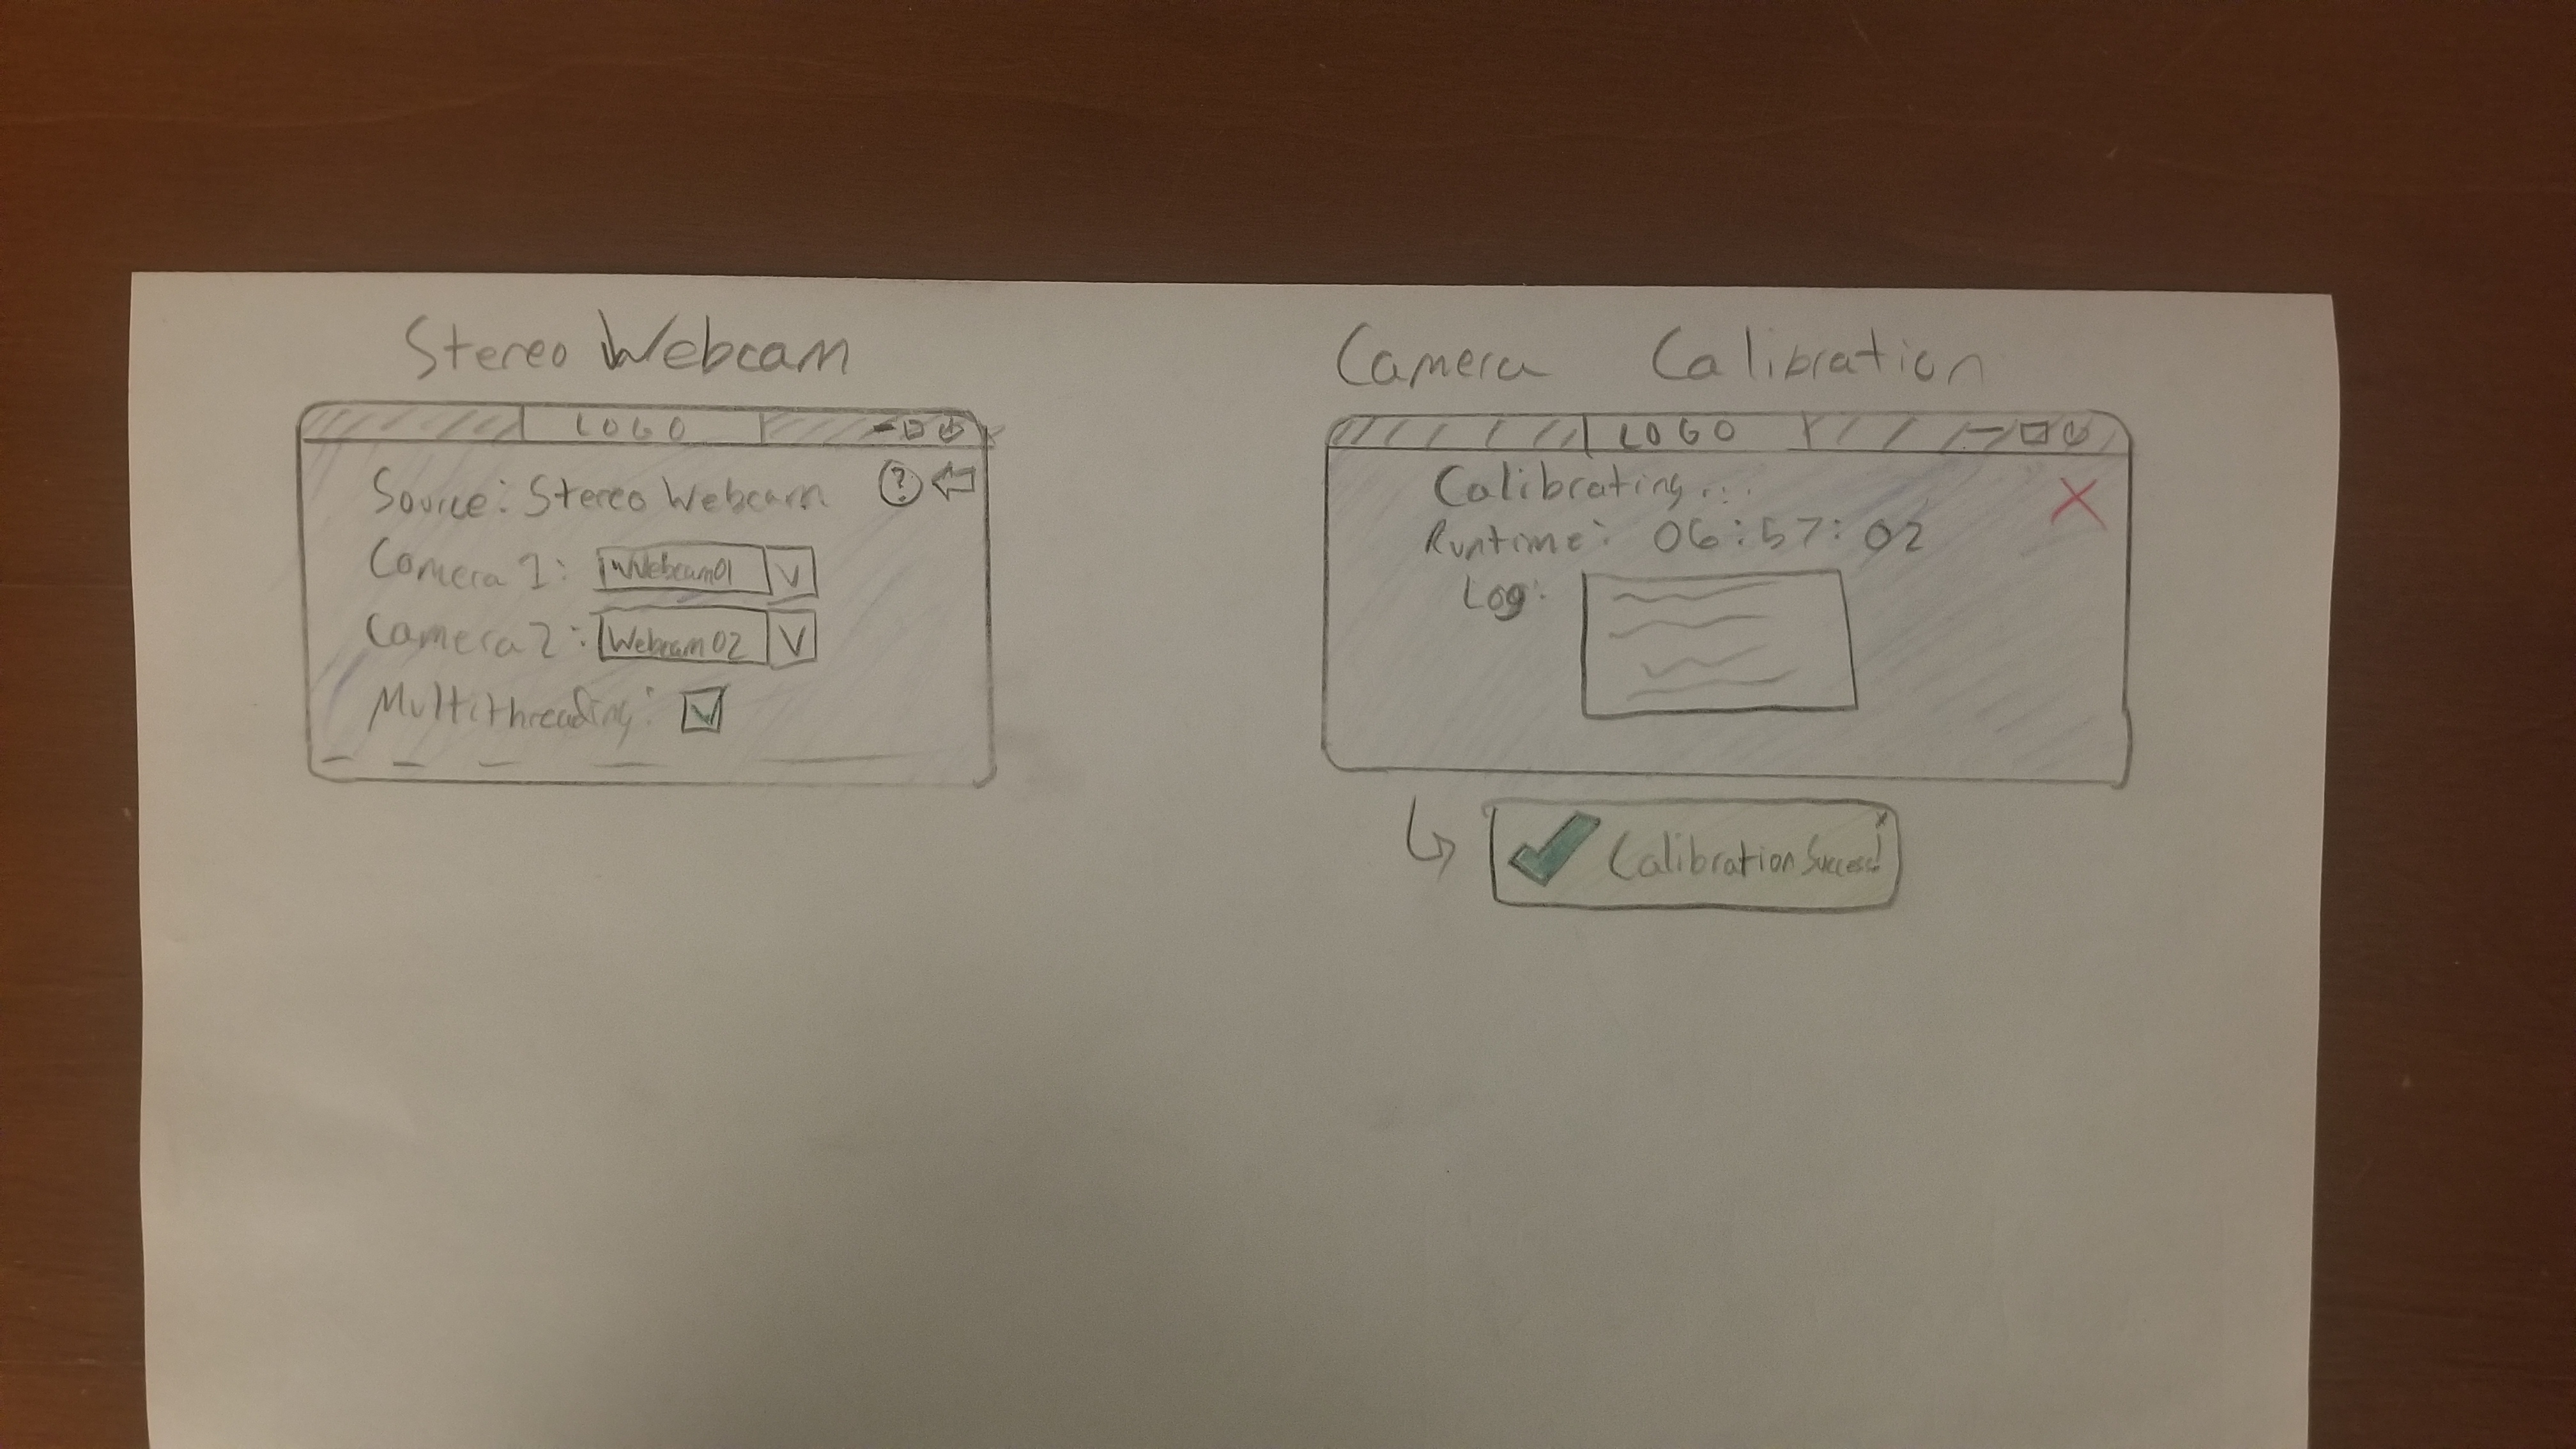 Stereo Webcam
LOGO
Source: Stereo Webcam ?
Camera 1: Webcam01 V
Camera 2: Webcam02 V
Multithreading:
Camera Calibration
LOGO
Calibrating...
X
Runtime: 06:57:02
Log:
Calibration Success!
x